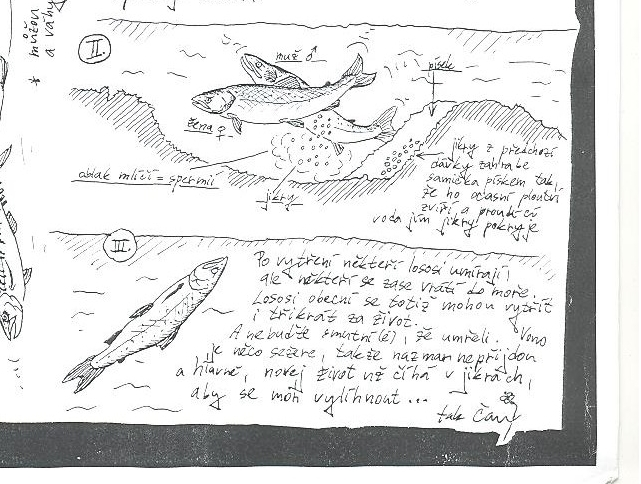 * mužou
a váhy
II.
muž ♂
písek
žena ♀
oblak mlíčí = spermií
jikry
jikry z předchozí
dávky zahrabe
samička pískem tak,
že ho ocasní ploutví
zvíří a proudící
voda jím jikry pokryje
III.
Po vytření někteří lososi umírají,
ale někteří se zase vrátí do moře.
Lososi obecní se totiž mohou vytřít
i třikrát za život.
A nebuďte smutní(é), že umřeli. Vono
je něco sežere, takže nazmar nepřijdou
a hlavně, novej život už číhá v jikrách,
aby se moh vylíhnout...
tak čau